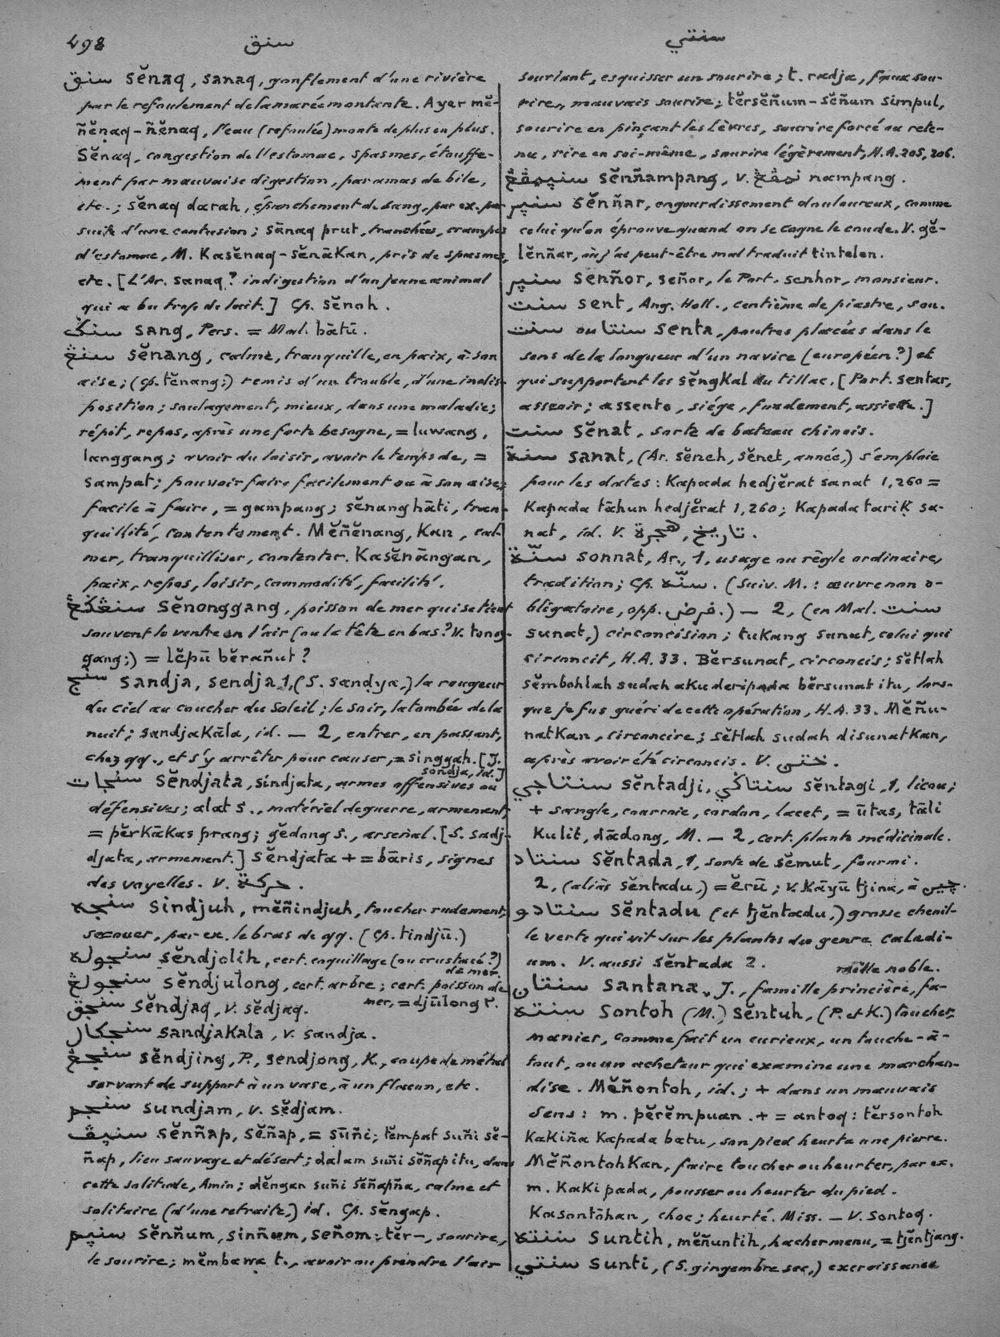 498 سنق سنتي
سنق sĕnaq, sanaq, gonflement d'une rivière
par le refoulement de la marée montante. Ayer mĕ-
ñĕnaq-ñĕnaq, l'eau (refoulée) monte de plus en plus.
Sĕnaq, congestion de l'estomac, spasmes, étouffe-
ment par mauvaise digestion, par amas de bile,
etc.; sĕnaq darah, épanchement de sang, par ex. par
suite d'une contusion; sānaq prut, tranchées, crampes
d'estomac, M. Kasĕnaq-sĕnāKan, pris de spasmes,
etc. [L'Ar. sanaq? indigestion d'un jeune animal
qui a bu trop de lait.] Cp. sĕnoh.
سنݢ sang, Pers. = Mal. bātū.
سنڠ sĕnang, calme, tranquille, en paix, à son
aise; (cp. tĕnang;) remis d'un trouble, d'une indis-
position; soulagement, mieux, dans une maladie;
répit, repos, après une forte besogne, = luwang,
langgang; avoir du loisir, avoir le temps de, =
sampat; pouvoir faire facilement ou à son aise;
facile à faire, = gampang; sĕnang hāti, tran-
quillité, contentement. Mĕñĕnang, Kan, cal-
mer, tranquilliser, contenter. Kasĕnāngan,
paix, repos, loisir, commodité, facilité.
سنڠݢڠ sĕnonggang, poisson de mer qui se tient
souvent le ventre en l'air (ou la tête en bas? V. tong-
gang;) = lĕpū bĕrañut?
سنج sandja, sendja 1, (S. sandya,) la rougeur
du ciel au coucher du Soleil; le soir, la tombée de la
nuit; sandjaKāla, id. — 2, entrer, en passant,
chez qq., et s'y arrêter pour causer, = singgah. [J.
sondja, id.]
سنجات sĕndjata, sindjata, armes offensives ou
défensives; alat s., matériel de guerre, armement,
= pĕrKāKas prang; gĕdong s., arsenal. [S. sadj-
djata, armement.] Sĕndjata + = bāris, signes
des voyelles. V. حركة.
سنجه sindjuh, mĕñindjuh, toucher rudement,
secouer, par ex. le bras de qq. (Cp. tindjū.)
سنجوله sĕndjolih, cert. coquillage (ou crustacé?)
de mer.
سنجولڠ sĕndjulong, cert. arbre; cert. poisson de
mer, = djūlong ۲.
سنجق sĕndjaq, v. sĕdjaq.
سنجكال sandjaKala, v. sandja.
سنجڠ sĕndjing, P., sendjong, K., coupe de métal
servant de support à un vase, à un flacon, etc.
سنجم sundjam, v. sĕdjam.
سنيڤ sĕnñap, sĕñap, = sūñi; tĕmpat suñi sĕ-
ñap, lieu sauvage et désert; dalam suñi sĕñap itu, dans
cette solitude, Amin; dĕngan suñi sĕñapña, calme et
solitaire (d'une retraite,) id. Cp. sĕngap.
سنيم sĕnñum, sinñum, señom; tĕr-, sourire,
le sourire; mĕmbawa t., avoir ou prendre l'air
souriant, esquisser un sourire; t. radja, faux sou-
rire, mauvais sourire; tĕrsĕñum-sĕñum simpul,
sourire en pinçant les lèvres, sourire forcé ou rete-
nu, rire en soi-même, sourire légèrement, H.A. 205, 206.
سنيمڤڠ sĕnñampang, v. نمڤڠ nampang.
سنير sĕnñar, engourdissement douloureux, comme
celui qu'on éprouve quand on se cogne le coude. V. gĕ-
lĕnñar, où j'ai peut-être mal traduit tintelen.
سنير senñor, señor, le Port. senhor, monsieur.
سنت sent, Ang. Holl., centième de piastre, sou.
سنت ou سنتا senta, poutres placées dans le
sens de la longueur d'un navire (européen?) et
qui supportent les sĕngKal du tillac. [Port. sentar,
asseoir; assento, siége, fondement, assiette.]
سنت sĕnat, sorte de bateau chinois.
سنة sanat, (Ar. sĕneh, sĕnet, année,) s'emploie
pour les dates: Kapada hedjĕrat sanat 1,260 =
Kapada tāhun hedjĕrat 1,260; Kapada tariK sa-
nat, id. V. تاريخ, هجرة.
سنّة sonnat, Ar., 1, usage ou règle ordinaire,
tradition; Cp. سنّه. (Suiv. M.: œuvre non o-
bligatoire, opp. فرض.) — 2, (en Mal. سنت
sunat,) circoncision; tuKang sunat, celui qui
circoncit, H.A. 33. Bĕrsunat, circoncis; sĕtlah
sĕmbohlah sudah aKu deripada bĕrsunat itu, lors-
que je fus guéri de cette opération, H.A. 33. Mĕñu-
natKan, circoncire; sĕtlah sudah disunatKan,
après avoir été circoncis. V. ختن.
سنتاجي sĕntadji, سنتاݢي sĕntagi, 1, licou;
+ sangle, courroie, cordon, lacet, = ūtas, tāli
Kulit, dādong, M. — 2, cert. plante médicinale.
سنتاد sĕntada, 1, sorte de sĕmut, fourmi.
2, (aliàs sĕntadu,) = ĕrū; v. Kāyū tjina, à چين.
سنتادو sĕntadu (et tjĕntadu,) grosse chenil-
le verte qui vit sur les plantes du genre Caladi-
um. V. aussi sĕntada 2.
mille noble.
سنتان santana, J., famille princière, fa-
سنته sontoh (M.) sĕntuh, (P. et K.) toucher,
manier, comme fait un curieux, un touche-à-
tout, ou un acheteur qui examine une marchan-
dise. Mĕñontoh, id.; + dans un mauvais
sens: m. pĕrĕmpuan. + = antoq: tĕrsontoh
KaKiña Kapada batu, son pied heurta une pierre.
MĕñontohKan, faire toucher ou heurter, par ex.
m. KaKi pada, pousser ou heurter du pied.
Kasontōhan, choc; heurté. Miss. — V. sontoq.
سنته suntih, mĕñuntih, hacher menu, = tjĕntjang.
سنتي sunti, (S. gingembre sec,) excroissance